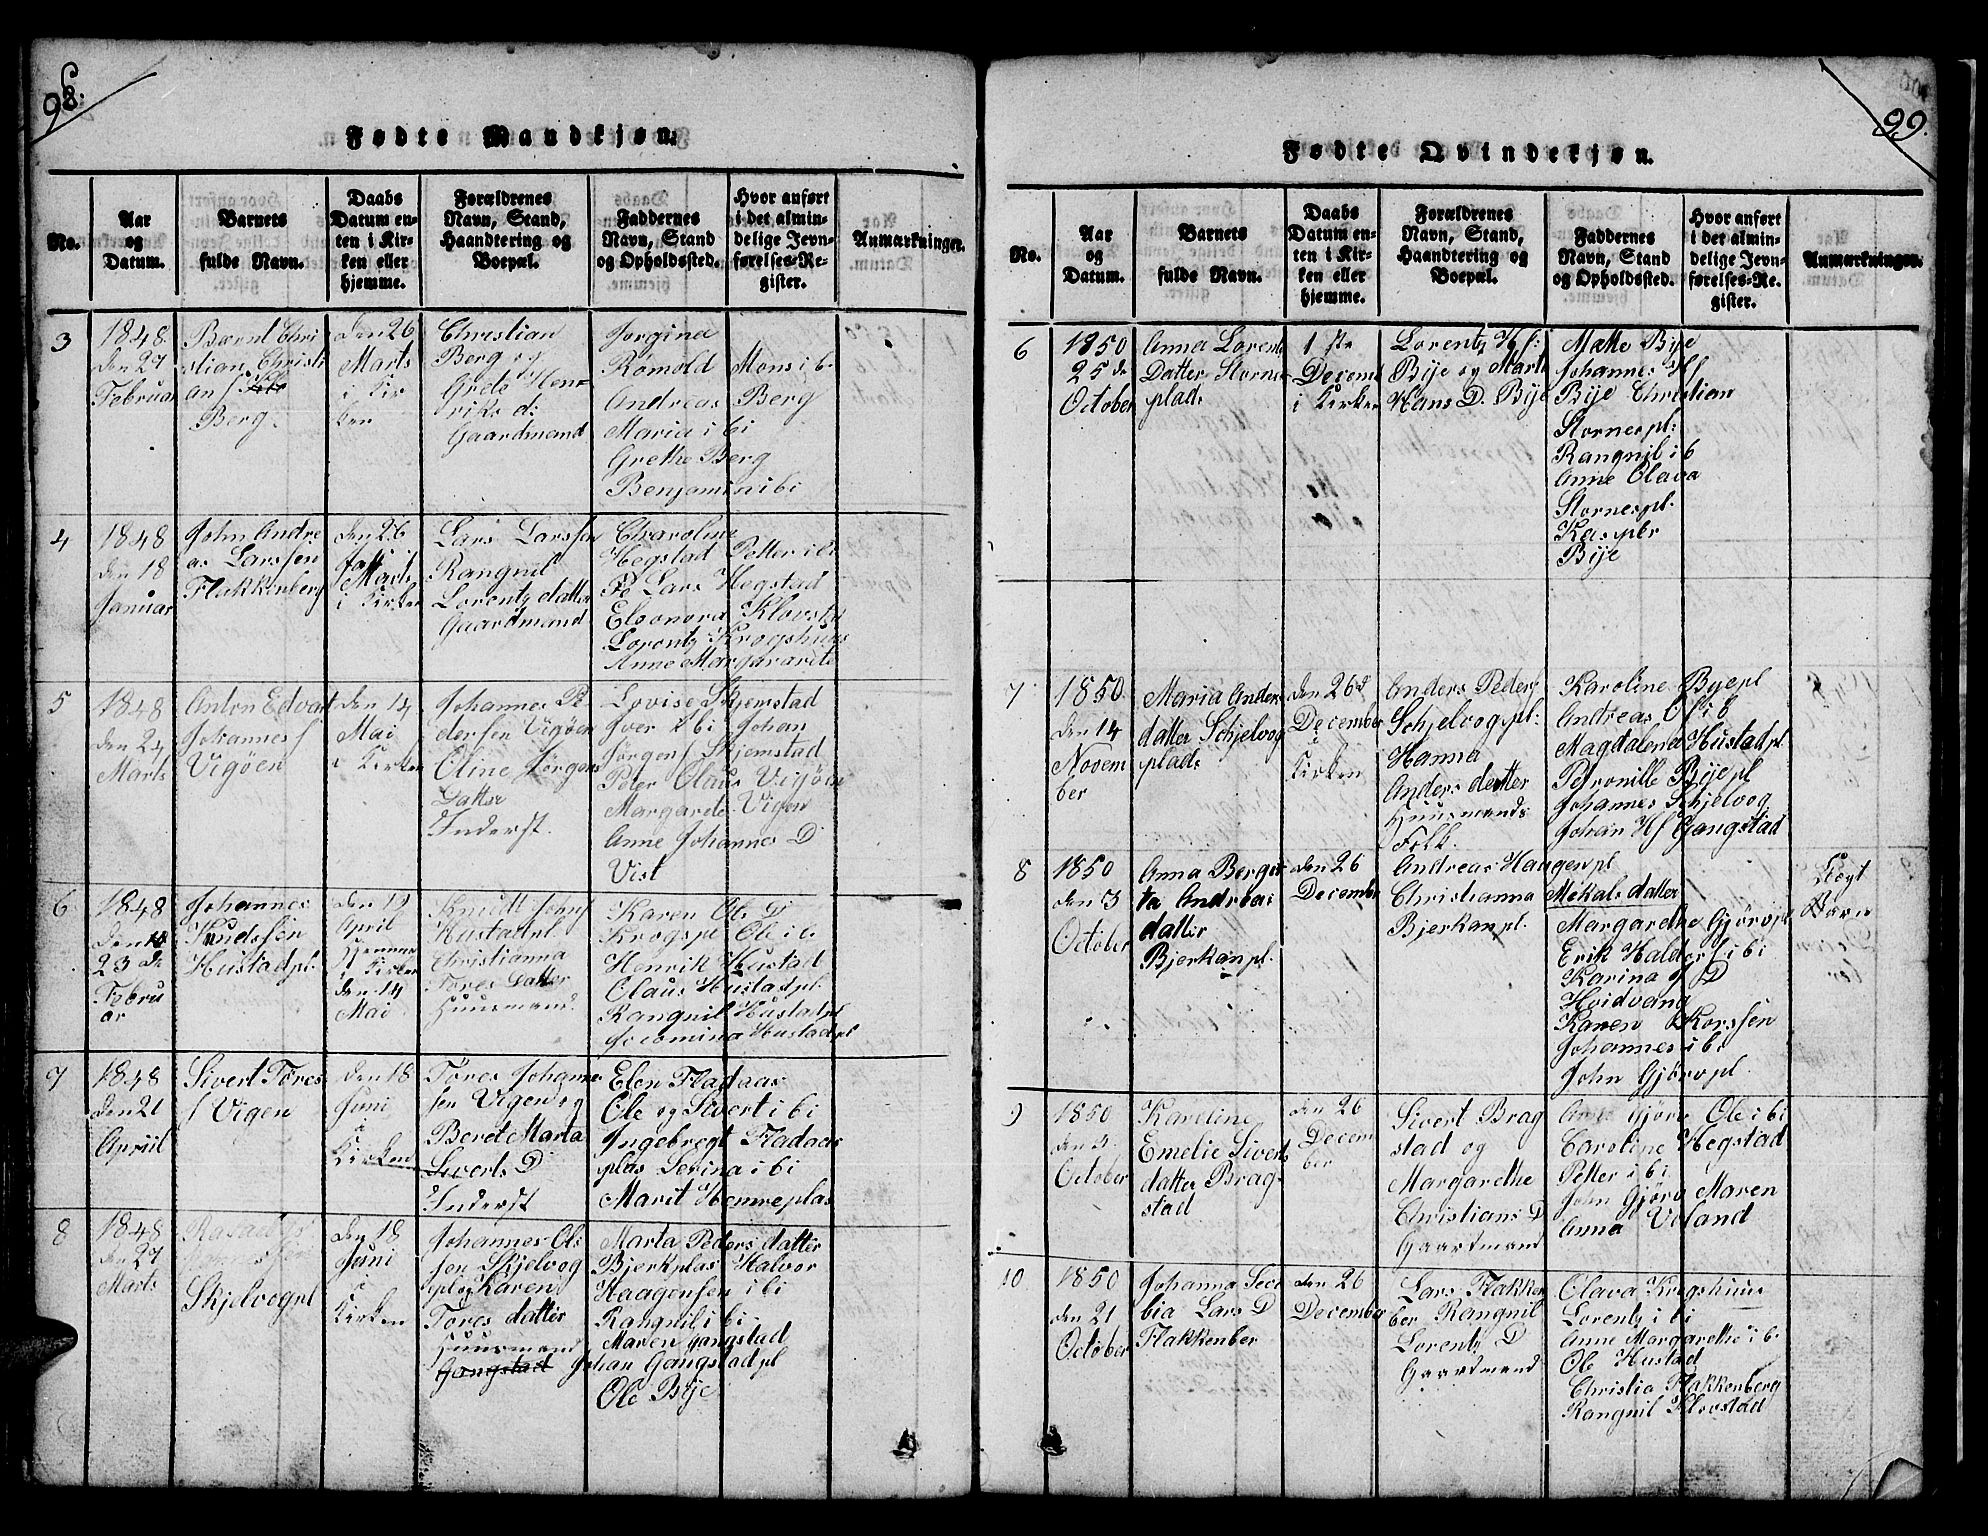 98.
Fødte Mandkjøn.
No.
Aar
og
Datum.
Barnets
fulde Navn.
Daabs
Datum en-
ten i Kir-
ken eller
hjemme.
Forældrenes
Navn, Stand,
Haandtering og
Boepæl.
Faddernes
Navn, Stand
og Opholdssted.
Hvor anført
i det almin-
delige Jevn-
førelses-Re-
gister.
Anmærkninger.
3
1848
den 27
Februar
Bærnt Chri
stian Christi
an f
Berg.
den 26
Marts
i Kir
ken
Christian
Berg og
Grete Hen-
riks d:
Gaardmand
Jorgina
Romold Mons i b
Andreas Berg
Maria i bi
Grethe Berg
Benjamin i bi
4
1848
den 18
Januar
John Andre
as Larssen
Flakkenberg
den 26
Marts
i Kirken
Lars Larssen
Rangnil
Lorentz datter
Gaardmand
Charoline
Hegstad Petter i bi
Lars Hegstad
Eleonora Klovst
Lorentz Krogshuus
Anne Margararete
5
1848
den 24
Marts
Anton Edvart
Johannes f
Vigøen
den 14
Mai
i Kirken
Johannes Pe
dersen Vigøen
Oline Jørgens
Datter
Inderst.
Lovise Skjemstad
Iver i bi Johan
Jørgen f Skjemstad
Peter Olaus Vigøen
Margarete Vigen
Anne Johannes D
Vist
6
1848
23 de
Febru
ar
Johannes
Knudssen
Hustadpl.
den 19
April
Hjemme
i Kirken
den 14
Mai
Knudt Johns
Hustadpl
Christianna
Tores Datter
Huusmand
Karen Ole D
Krogspl Ole i bi
Henrik Hustad
Olaus Hustadpl.
Rangnil Hustadpl
Jocomina Hustadpl
7
1848
den 21
Apriil
Sivert Tores
f Vigen
den 18
Juni
i
Kirken
Tores Johannes
sen Vigen og
Beret Marta
Siverts D
Inderst
Elen Fladaas
Ole og Sivert i bi
Ingebregt Fladaas
plas Serina i bi
Marit Hemreplas
8
1848
den 27
Marts
Skjelvogpl
den 18
Juni
i
Kirken
Johannes Ol
sen Skjelvog
pl og Karen
Tores datter
Huusmand
Gangstad
Marta Peders datter
Bjerkplas Halvor
Haagensen i bi
Rangnil i bi
Maren gangstad
Johan Gangstad pl
Ole Bije
99.
Fødte Qvindekjøn.
No.
Aar
og
Datum.
Barnets
fulde Navn.
Daabs
Datum en-
ten i Kir-
ken eller
hjemme.
Forældrenes
Navn, Stand,
Haandtering og
Boepæl.
Faddernes
Navn, Stand
og Opholdssted.
Hvor anført
i det almin-
delige Jevn-
førelses-Re-
gister.
Anmærkninger.
6
1850
25 de
October
Anna Lorentz
Datter Stornes
plads
1 ste
Decemb
i Kirken
Lorentz H f:
Bije og Marta
Hans D. Bije
Mette Bije
Johannes
Bije Christian
Stornespl:
Rangnil i b
Anne Olava
Stornespl.
Kasper
Bije
7
1850
den 14
Novem
ber
Maria Anders
datter Schjelvog
plads
den 26 d
December
i
Kirken
Anders Peders
Schjelvogspl:
Hanna
Anders datter
Huusmands
Folk
Karoline Byepl
Andreas
Magdalena Hustadpl
Petronille Bijepl
Johannes Skjelvog
Johan H f Gangstad
8
1850
den 3
October
Anna Bergit
ta Andreas
datter
Bjerkanpl.
den 26
December
Andreas Haugenpl
Christianna Mekals datter
Bjerkanpl.
Margarethe Gjørvpl
Erik Haldors f i bi
Karina D
Hvidvang
Karen Korssen
Johannes i bi
John Gjørvpl.
Uægt
Barn
9
1850
den 3
October
Kareline
Emelie Siverts
datter Brag
stad
den 26
Decem
ber
Sivert Brag
stad og
Margarethe
Christians D
Gaartmand
Gjørv Ole i bi
Caroline Hegstad
Petter i bi
John Gjørv Maren
Anna Voland
10
1850
den 21
October
Johanna Seci
bia Lars D
Flakkenber
den 26
December
Lars Flakken
ber Rangnil
Lorentz D
Gaartmand
Olava Krogshuus
Lorentz i bi
Anne Margarethe i bi
Ole Hustad
Christia Flakkenberg
Rangnil Klovstad